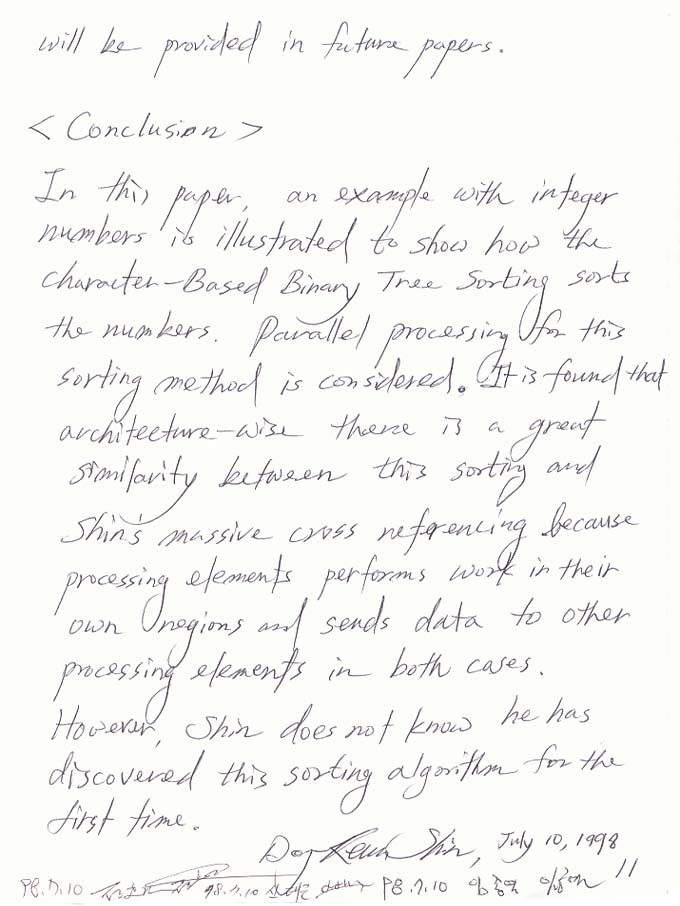 will be provided in future papers.
< Conclusion >
In this paper, an example with integer
numbers is illustrated to show how the
character-Based Binary Tree Sorting sorts
the numbers. Parallel processing for this
sorting method is considered. It is found that
architecture-wise there is a great
similarity between this sorting and
Shin's massive cross referencing because
processing elements performs work in their
own regions and sends data to other
processing elements in both cases.
However, Shin does not know he has
discovered this sorting algorithm for the
first time.
Shin, July 10, 1998
98.7.10 98.7.10 98.7.10 11